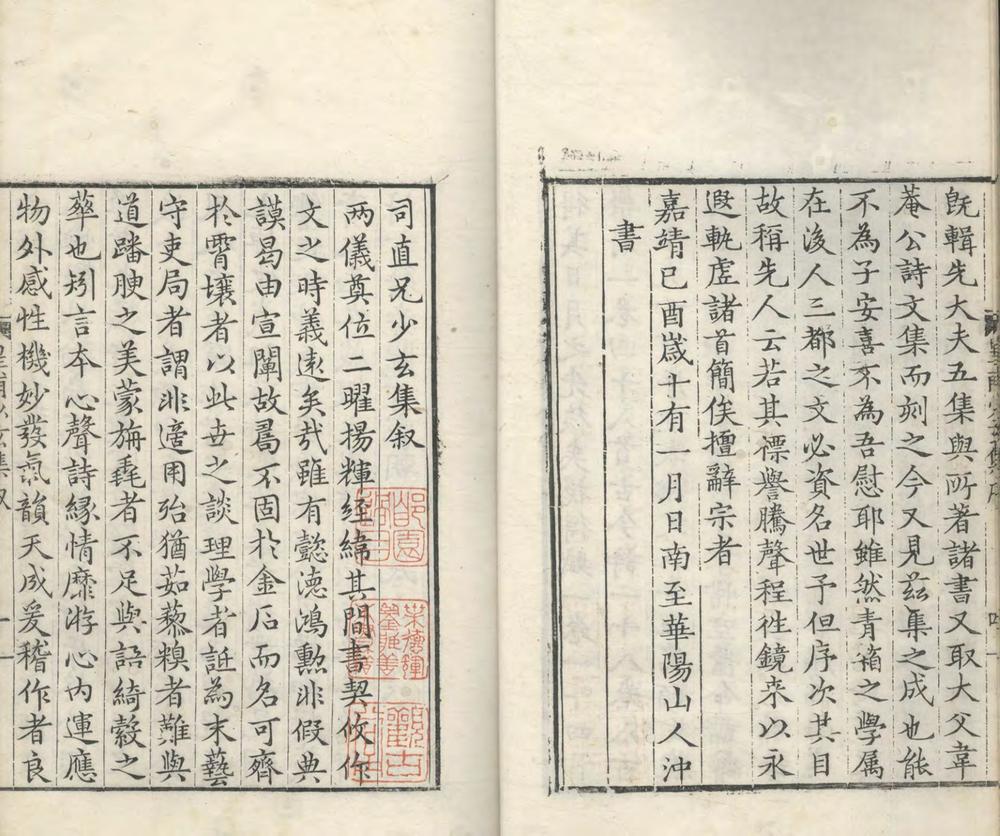 既輯先大夫五集與所著諸書又取大父韋
菴公詩文集而刻之今又見茲集之成也能
不為子安喜不為吾慰耶雖然青箱之學属
在後人三都之文必資名世予但序次其目
故稱先人云若其標譽騰聲程往鏡来以永
遐軌虗諸首簡俟擅辭宗者
嘉靖己酉歲十有一月日南至華陽山人沖
書
司直兄少玄集叙
两儀奠位二曜揚輝經緯其間書契攸作
文之時義逺矣㢤雖有懿徳鴻勲非假典
謨曷由宣闡故鬵不固於金石而名可齊
於霄壤者以此世之談理學者詆為末藝
守吏局者謂非適用殆猶茹藜糗者難與
道膰腴之美蒙旃毳者不足與語綺縠之
華也矧言本心聲詩縁情靡游心内運應
物外感性機妙發氣韻天成爰稽作者良